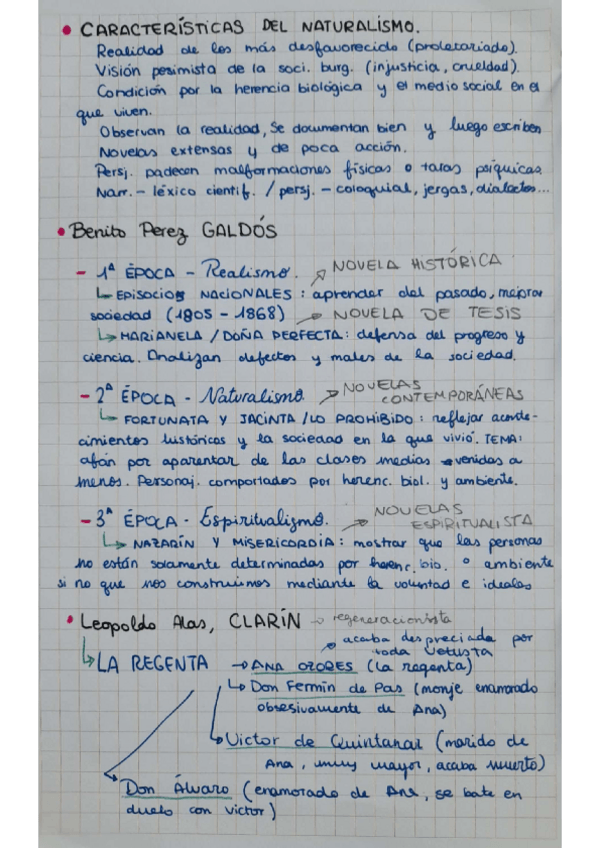 • CARACTERÍSTICAS DEL NATURALISMO.
Realidad de los más desfavorecido (proletariado).
Visión pesimista de la soci. burg. (injusticia, crueldad).
Condición por la herencia biológica y el medio social en el
que viven.
Observan la realidad, se documentan bien y luego escriben
Novelas extensas y de poca acción.
Persj. padecen malformaciones físicas o taras psíquicas.
Narr. - léxico científ. / persj. - coloquial, jergas, dialectos...
• Benito Perez GALDÓS
- 1ª ÉPOCA - Realismo. → NOVELA HISTÓRICA
↳ EPISOCIOS NACIONALES : aprender del pasado, mejorar
sociedad (1805 - 1868) → NOVELA DE TESIS
↳ MARIANELA / DOÑA PERFECTA: defensa del progreso y
ciencia. Analizan defectos y males de la sociedad.
- 2ª ÉPOCA - Naturalismo. → NOVELAS
CONTEMPORÁNEAS
↳ FORTUNATA Y JACINTA / LO PROHIBIDO : reflejar aconte-
cimientos históricos y la sociedad en la que vivió. TEMA:
afán por aparentar de las clases medias venidas a
menos. Personaj. comportados por herenc. biol. y ambiente.
- 3ª ÉPOCA - Espiritualismo. → NOVELAS
ESPIRITUALISTA
↳ NAZARÍN Y MISERICORDIA : mostrar que las personas
no están solamente determinadas por herenc. bio. o ambiente
si no que nos construimos mediante la voluntad e ideales
• Leopoldo Alas, CLARÍN → regeneracionista
→ acaba despreciada por
toda Vetusta
↳ LA REGENTA → ANA OZORES (la regenta)
↳ Don Fermín de Pas (monje enamorado
obsesivamente de Ana)
Victor de Quintanar (marido de
Ana, muy mayor, acaba muerto)
Don Álvaro (enamorado de Ana, se bate en
duelo con victor)